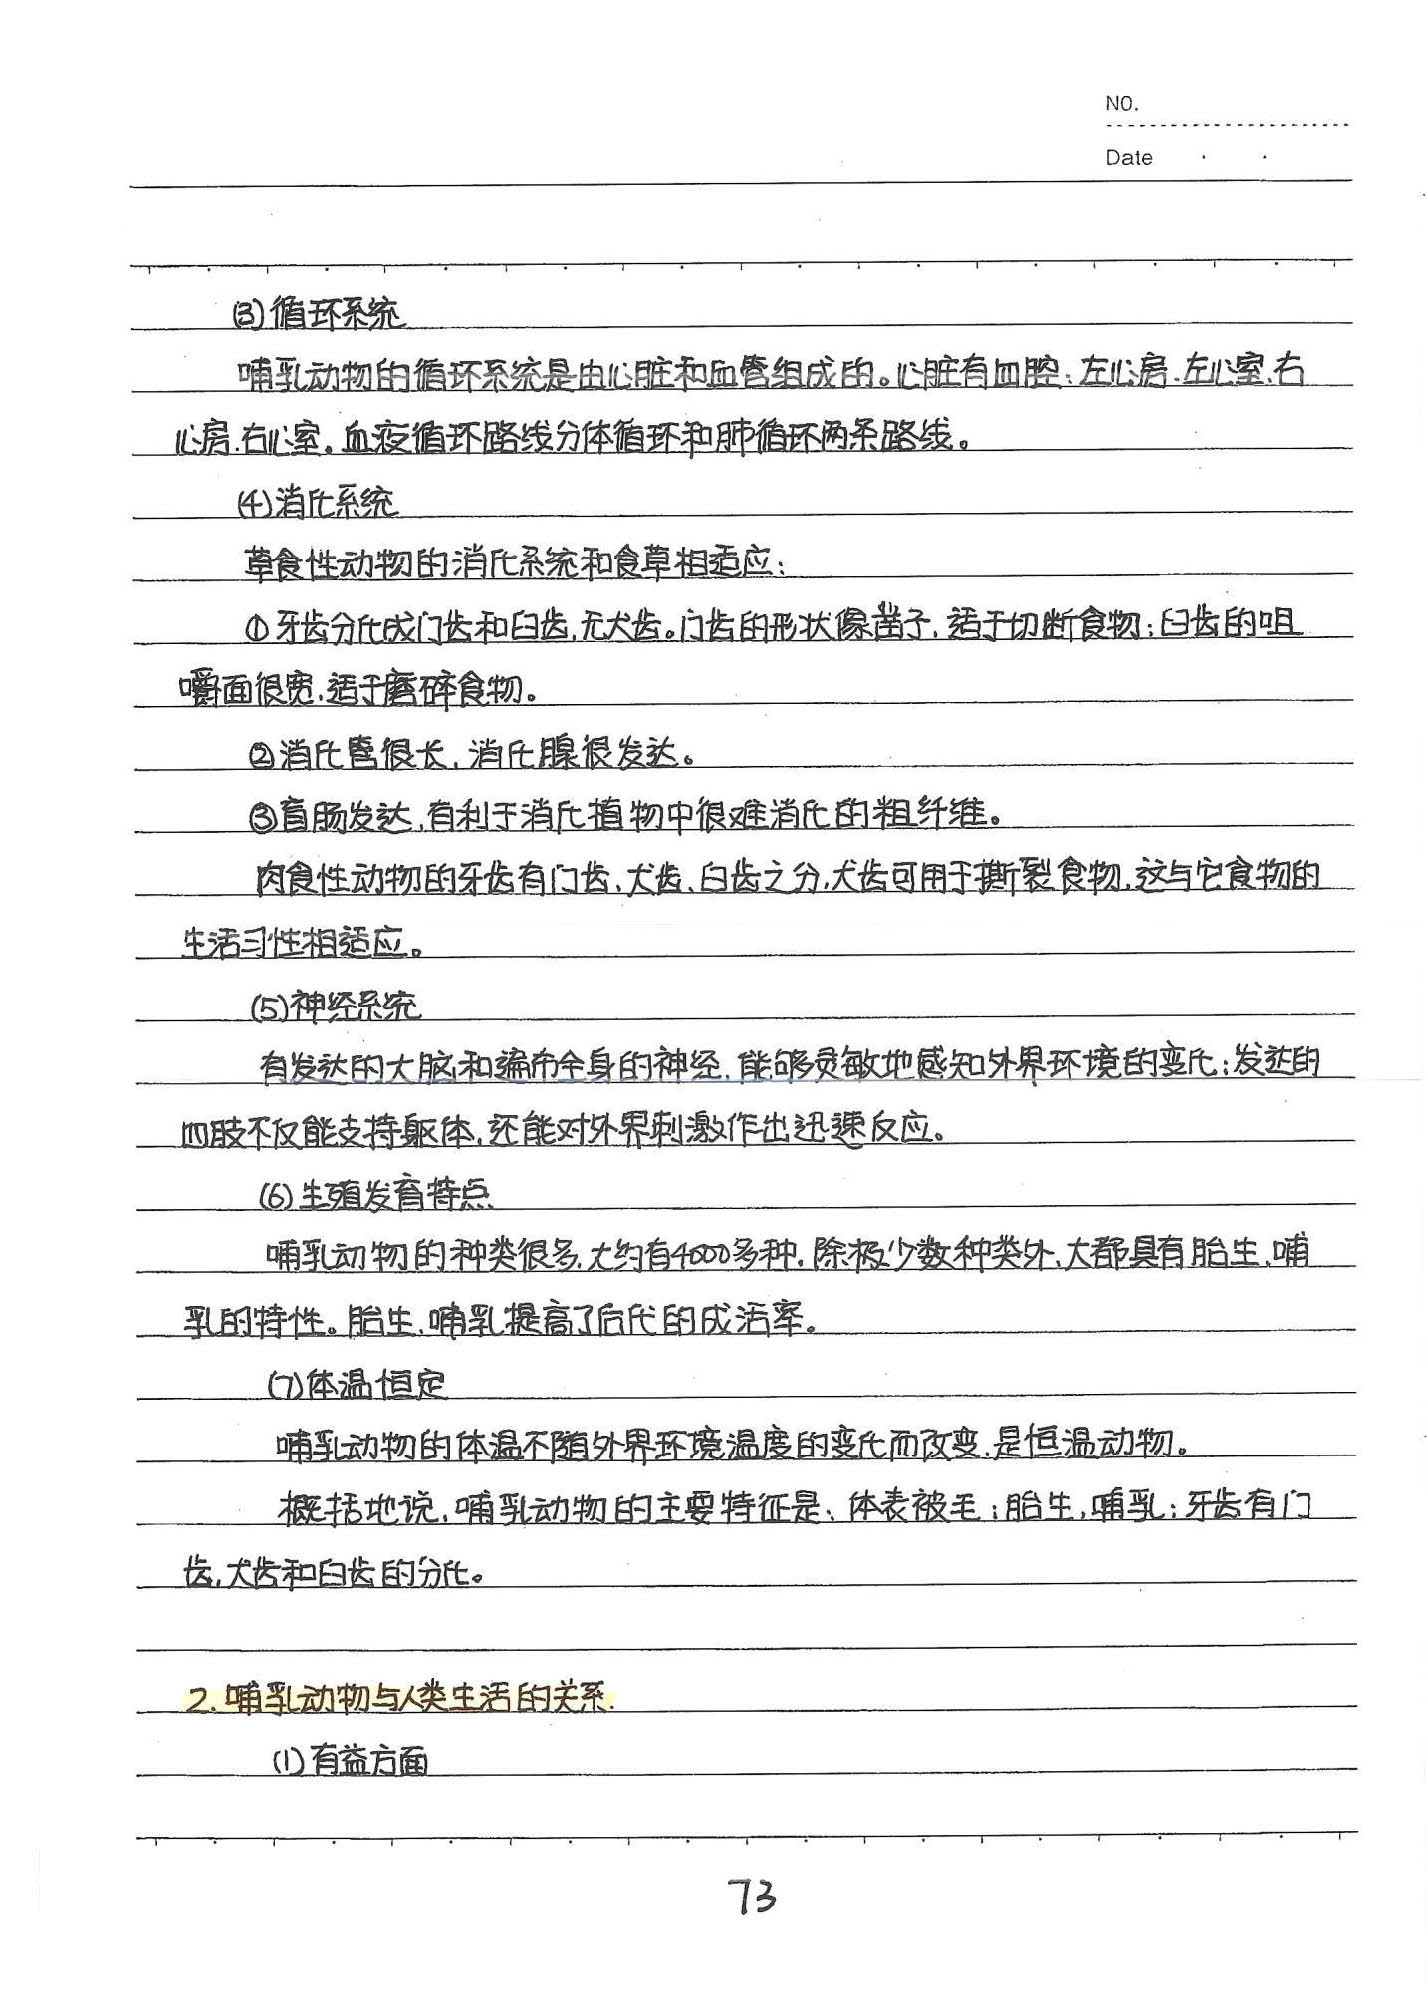 NO.
Date
(3)循环系统
哺乳动物的循环系统是由心脏和血管组成的。心脏有四腔:左心房、左心室、右
心房、右心室。血液循环路线分体循环和肺循环两条路线。
(4)消化系统
草食性动物的消化系统和食草相适应:
①牙齿分化成门齿和臼齿,无犬齿。门齿的形状像凿子,适于切断食物;臼齿的咀
嚼面很宽,适于磨碎食物。
②消化管很长,消化腺很发达。
③盲肠发达,有利于消化植物中很难消化的粗纤维。
肉食性动物的牙齿有门齿、犬齿、臼齿之分,犬齿可用于撕裂食物,这与它食物的
生活习性相适应。
(5)神经系统
有发达的大脑和遍布全身的神经,能够灵敏地感知外界环境的变化;发达的
四肢不仅能支持躯体,还能对外界刺激作出迅速反应。
(6)生殖发育特点
哺乳动物的种类很多,大约有4000多种,除极少数种类外,大都具有胎生、哺
乳的特性。胎生、哺乳提高了后代的成活率。
(7)体温恒定
哺乳动物的体温不随外界环境温度的变化而改变,是恒温动物。
概括地说,哺乳动物的主要特征是:体表被毛;胎生,哺乳;牙齿有门
齿,犬齿和臼齿的分化。
2.哺乳动物与人类生活的关系.
(1)有益方面
73